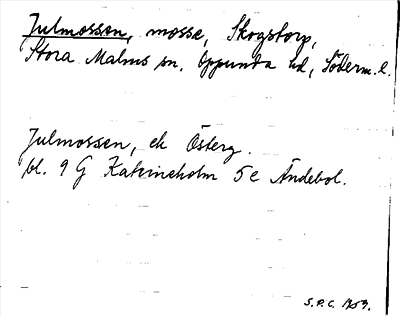 Julmossen, mosse, Skogstorp,
Stora Malms sn, Oppunda hd, Söderm. l.
Julmossen, ek Österg.
bl. 9 G Katrineholm 5 e Ändebol.
S.P.C. 1959.